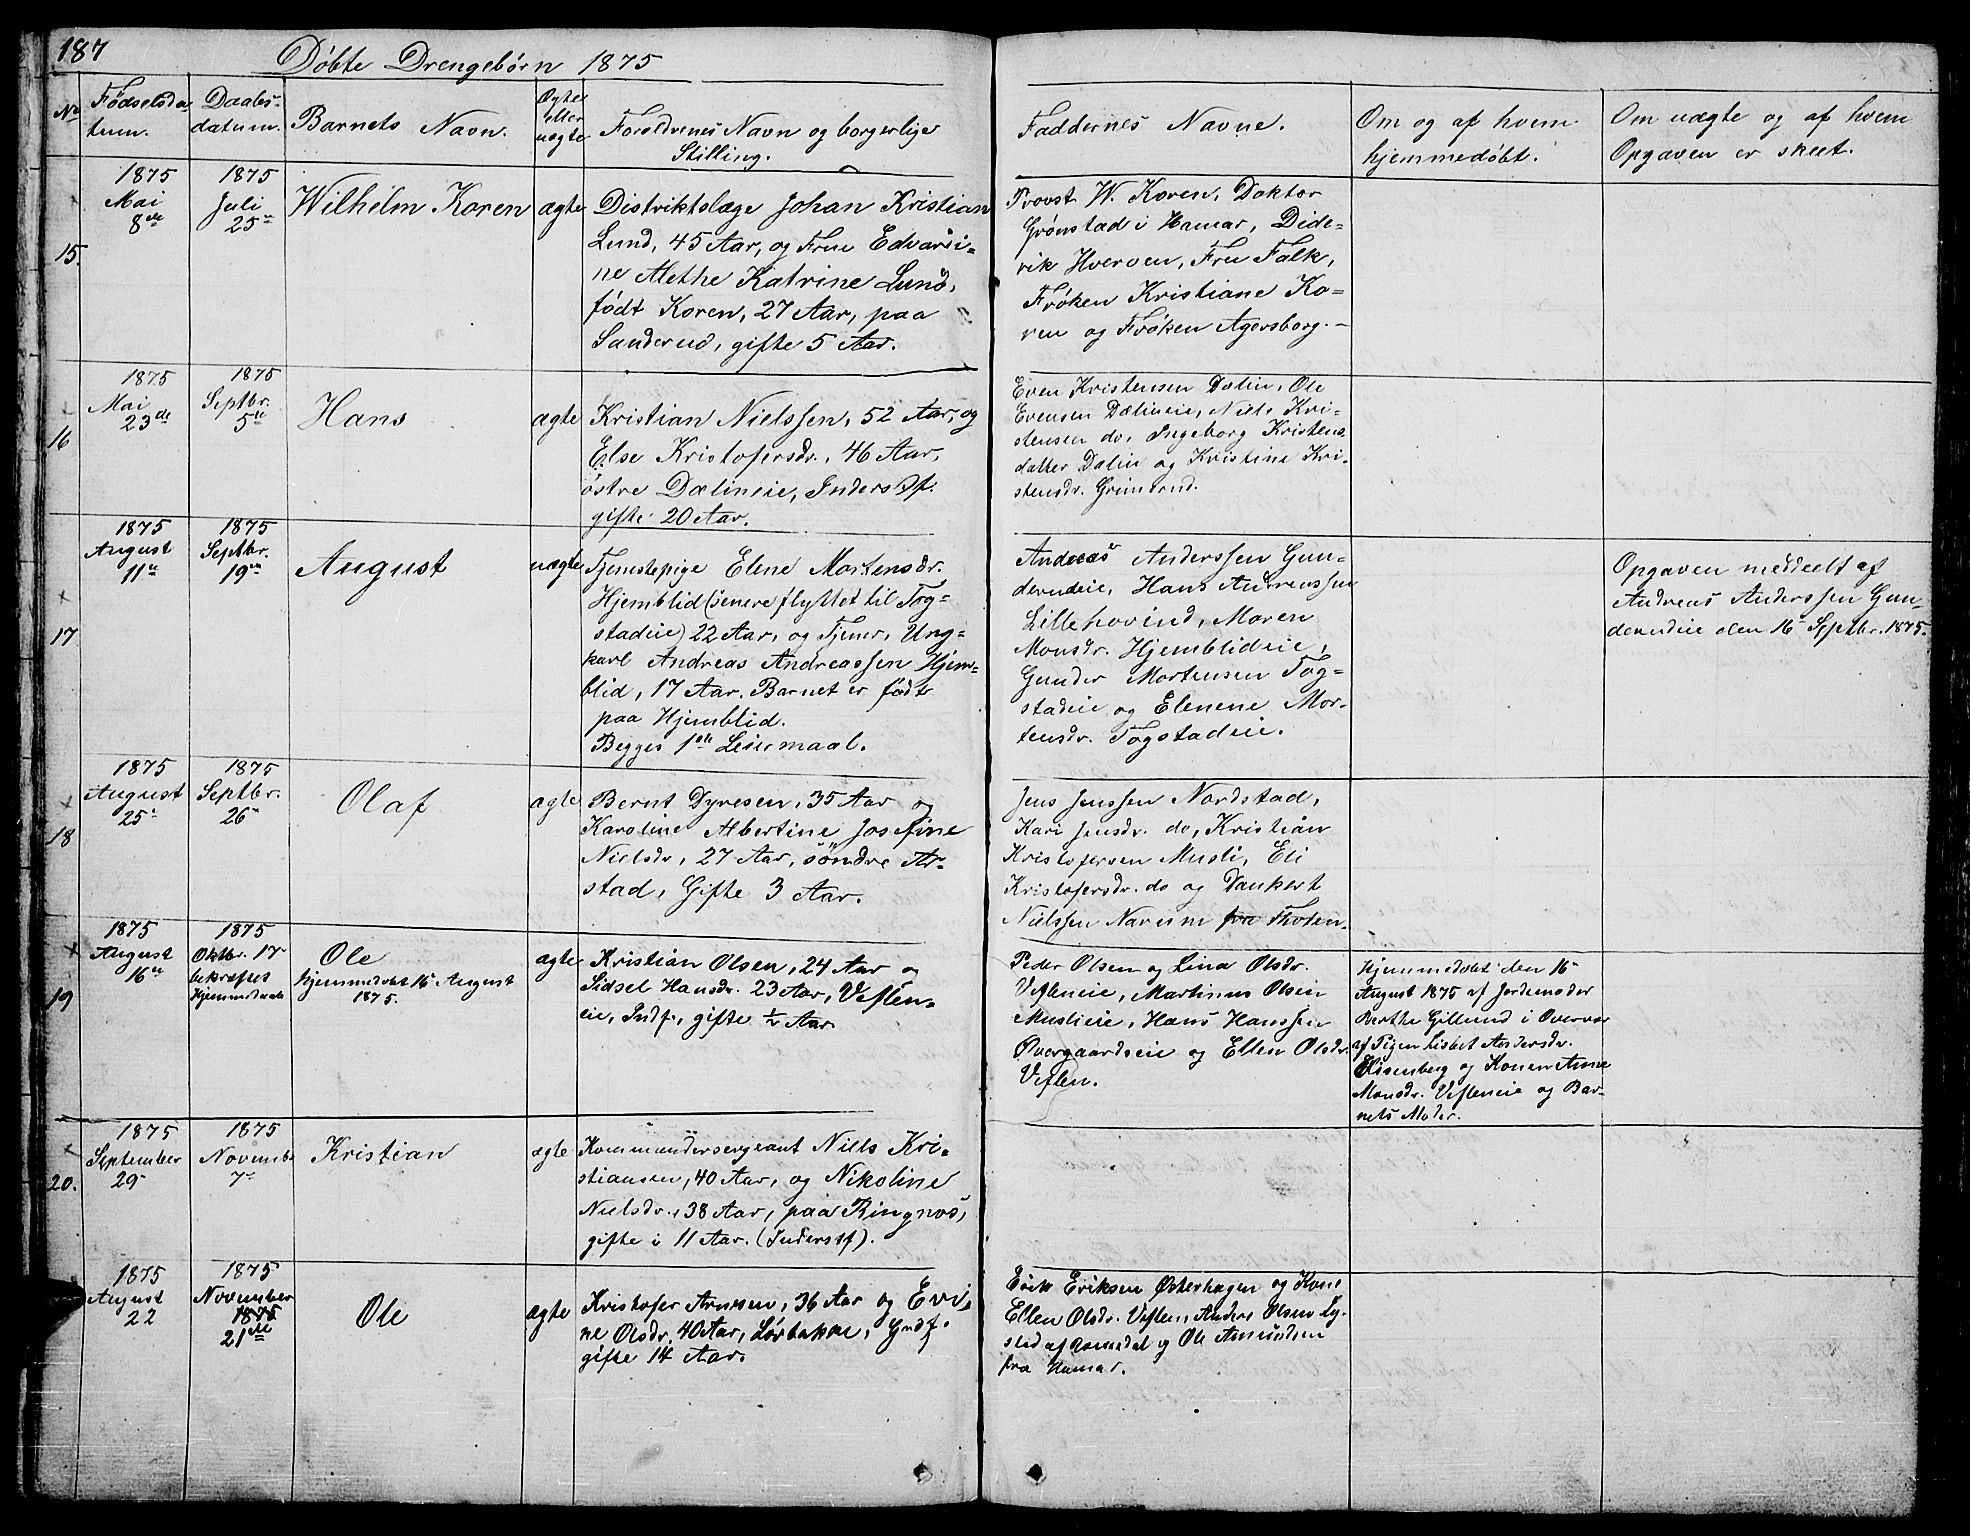 187
Døbte Drengebørn 1875
No
Fødselsda-
tum.
Daabs-
datum.
Barnets Navn.
Ægte
eller
uægte
Forældrenes Navn og borgerlige
Stilling.
Faddernes Navne.
Om og af hvem
hjemmedøbt.
Om uægte og af hvem
Opgaven er skeet.
15.
1875
Mai
8de
1875
Juli
25de
Wilhelm Koren
ægte
Distriktslæge Johan Kristian
Lund, 45 Aar, og Frue Edvardi-
ne Alethe Katrine Lund,
født Koren, 27 Aar, paa
Sanderud, gifte 5 Aar.
Provst W. Koren, Doktor
Grønstad i Hamar, Dide-
rik Hverven, Fru Falk,
Frøken Kristiane Ko-
ren og Frøken Agersborg. –
16
1875
Mai
23de
1875
Septbr.
5te
Hans
ægte
Kristian Nielssen, 52 Aar, og
Else Kristofersdr., 46 Aar,
østre Dælineie, Inderstf.
gifte 20 Aar.
Even Kristensen Dælin, Ole
Evensen Dælineie, Niels Kri-
stensen do, Ingeborg Kristens-
datter Dælin og Kristine Kri-
stensdr. Grimsrud.
17
1875
August
11te
1875
Septbr.
19de
August
uægte
Tjenestepige Elene Mortensdr.
Hjemblid (senere flyttet til Tog-
stadeie) 22 Aar, og Tjener, Ung-
karl Andreas Andreassen Hjem-
blid, 17 Aar. Barnet er født
paa Hjemblid.
Begges 1ste Leiermaal.
Andreas Anderssen Gun-
derudeie, Hans Andreassen
Lillehovind, Maren
Monsdr. Hjemblideie,
Gunder Mortensen Tog-
stadeie og Elenene Mor-
tensdr. Togstadeie.
Opgaven meddeelt af
Andreas Anderssen Gun-
derudeie den 16 Septbr. 1875.
18
1875
August
25
1875
Septbr.
26
Olaf
ægte
Bernt Dyresen, 35 Aar og
Karoline Albertine Josefine
Nielsdr, 27 Aar, søndre Ar-
stad, Gifte 3 Aar.
Jens Jenssen Nordstad,
Kari Jensdr. do, Kristian
Kristofersen Musli, Eli
Kristofersdr. do og Dankert
Nielssen Narum fra Thoten.
19
1875
August
16de
1875
Oktbr. 17
bekræftet
Hjemmedaab
Ole
hjemmedøbt 16 August
1875.
ægte
Kristian Olsen, 24 Aar og
Sidsel Hansdr. 23 Aar, Veflen-
eie, Indf., gifte ½ Aar.
Peder Olsen og Lina Olsdr.
Vefleneie, Martinus Olsen
Muslieie, Hans Hanssen
Øvergaardseie og Ellen Olsdr.
Veflen.
Hjemmedøbt den 16
August 1875 af Jordemoder
Berthe Gillund i Overvær
af Pigen Lisbet Andersdr.
Elisenberg og Konen Anne
Monsdr. Vefleneie og Bar-
nets Moder.
20.
1875
September
29
1875
Novembr
7
Kristian
ægte
Kommandersergeant Niels Kri-
stiansen, 40 Aar, og Nikoline
Nielsdr., 38 Aar, paa Ringnes,
gifte i 11 Aar. (Inderstf).
1875
August
22
1875
November
1875
21de
Ole
ægte
Kristofer Arnesen, 36 Aar og Evi-
ne Olsdr. 40 Aar, Lørbakke, Indf.
gifte 14 Aar.
Erik Eriksen Østerhagen og Kone
Ellen Olsdr. Veflen, Anders Olsen
af Romedal og Ole Amundsen
fra Hamar.